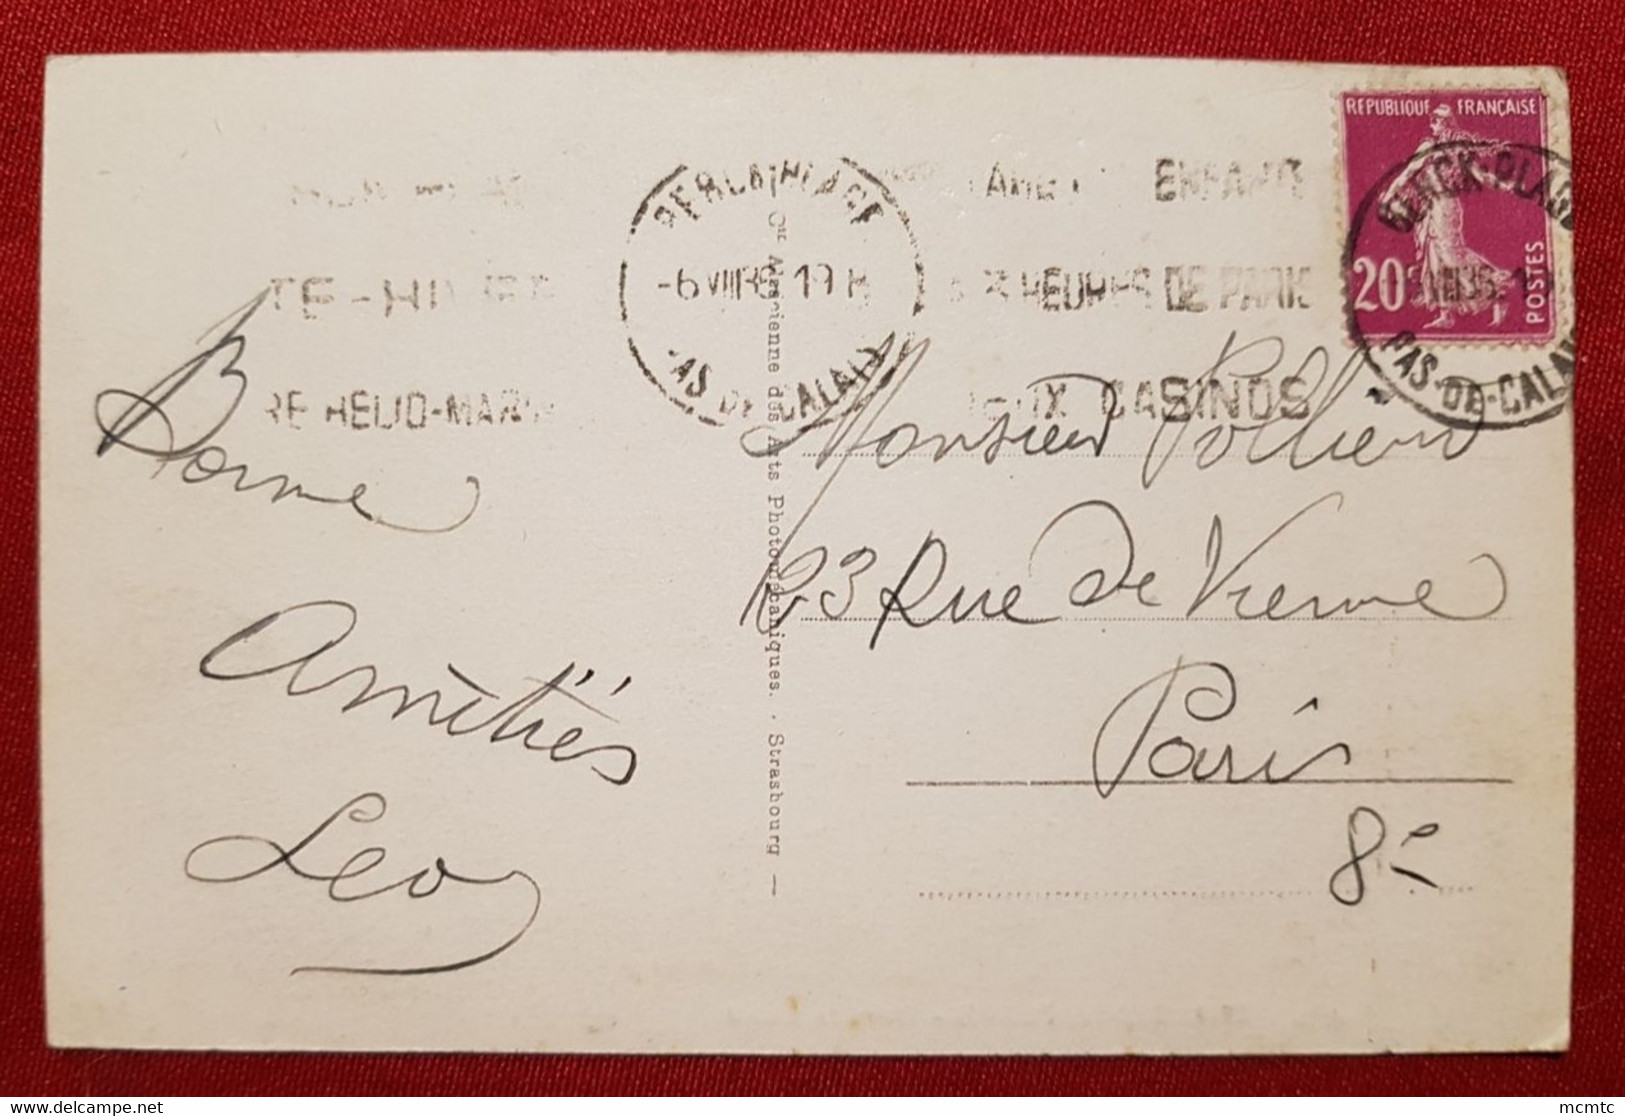 REPUBLIQUE FRANÇAISE
20
POSTES
BERCK-PLAGE
PAS-DE-CALAIS
BERCK-PLAGE
-6 VIII 19 H
PAS DE CALAIS
ENFANT
3 HEURES DE PARIS
CASINOS
TE-HI
RE HELIO-MARI
Cie Alsacienne des Arts Photomécaniques. - Strasbourg —
Bonne
Amitiés
Leo
Monsieur
23 Rue de Vienne
Paris
8e
mcmtc